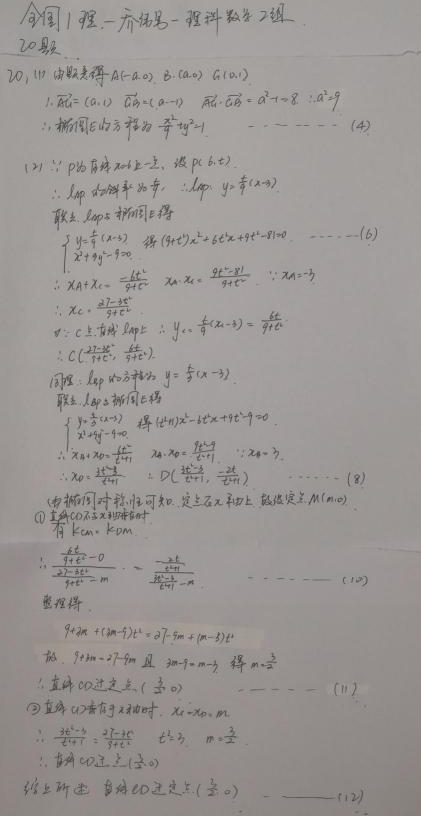 全国1理-乔伟男-理科数学2组
20题
20, (1) 由题意得 A(-a.0). B.(a.0) G(0.1)
∴ AG=(a,1) GB=(a.-1) AG·GB=a²-1=8 ∴a²=9
∴椭圆E的方程为 x²/9+y²=1 ------- (4)
(2) ∵ P为直线x=6上一点, 设P(6.t)
∴ lAP的斜率为 t/9, ∴lAP: y=t/9(x-3)
联立 lAP与椭圆E得
{ y=t/9(x-3) x²+9y²-9=0 得(9+t²)x²+6t²x+9t²-81=0 ------ (6)
∴ xA+xC=-6t²/9+t² xA·xC=9t²-81/9+t² ∵xA=-3
∴ xC=27-3t²/9+t²
又∵C点直线lAP上 ∴ yC=t/9(xC-3)=6t/9+t²
∴ C(27-3t²/9+t², 6t/9+t²)
同理: lBP的方程为 y=t/3(x-3)
联立 lBP与椭圆E得
{ y=t/3(x-3) x²+9y²-9=0 得 (t²+1)x²-6t²x+9t²-9=0
∴ xB+xD=6t²/t²+1 xB·xD=9t²-9/t²+1 ∵xB=3
∴ xD=3t²-3/t²+1 ∴ D(3t²-3/t²+1, -2t/t²+1) ------ (8)
(由椭圆对称性可知. 定点在x轴上 故设定点M(m.0)
① 直线CD不与x轴垂直时
有 KCM=KDM
∴ (6t/9+t² -0)/(27-3t²/9+t² -m) = (2t/t²+1)/(3t²-3/t²+1 -m) ------- (10)
整理得
9+3m+(3m-9)t²=27-9m+(m-3)t²
故. 9+3m=27-9m 且 3m-9=m-3 得 m=3/2
∴直线CD过定点(3/2.0) ------ (11)
② 直线CD垂直于x轴时. xC=xD=m
∴ 3t²-3/t²+1=27-3t²/9+t² t²=3 m=3/2
∴直线CD过点(3/2.0)
综上所述 直线CD过定点(3/2.0) ------ (12)